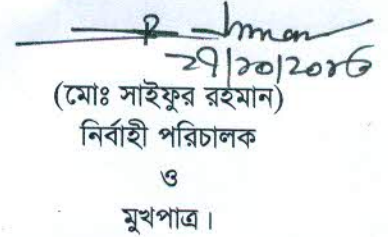 ২৭/১০/২০১৬
(মোঃ সাইফুর রহমান)
নির্বাহী পরিচালক
ও
মুখপাত্র।